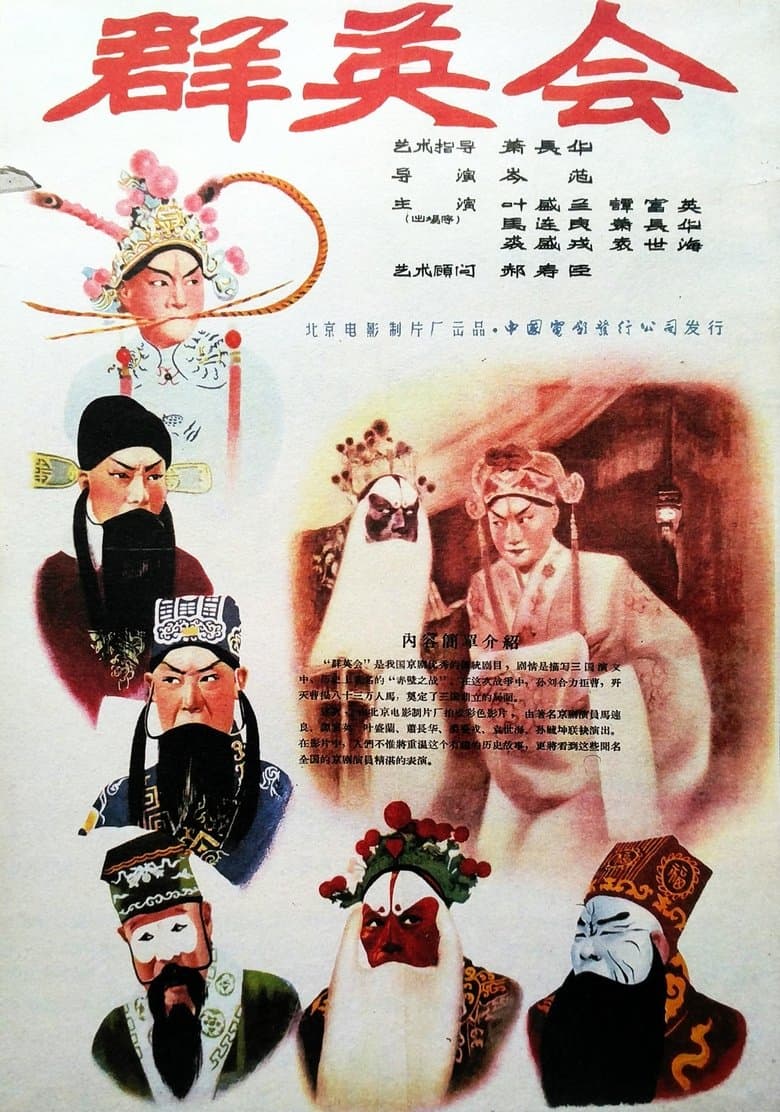 群英会
艺术指导 萧長华
导演 岑范
主演 叶盛兰 譚富英
(出場序) 馬连良 萧長华
裘盛戎 袁世海
艺术顧问 郝寿臣
北京电影制片厂出品·中國電影發行公司发行
內容簡單介紹
“群英会”是我国京剧优秀的傳統剧目，剧情是描写三国演文
中、历史上著名的“赤壁之战”。在这次战爭中，孙刘合力拒曹，歼
灭曹操八十三万人馬，奠定了三国鼎立的局面。
北京电影制片厂拍成彩色影片，由著名京剧演員馬連
良、譚富英、叶盛蘭、蕭長华、裘盛戎、袁世海、孙毓坤联袂演出。
在影片中，人們不惟將重温这个有趣的历史故事，更將看到这些聞名
全国的京剧演員精湛的表演。
福